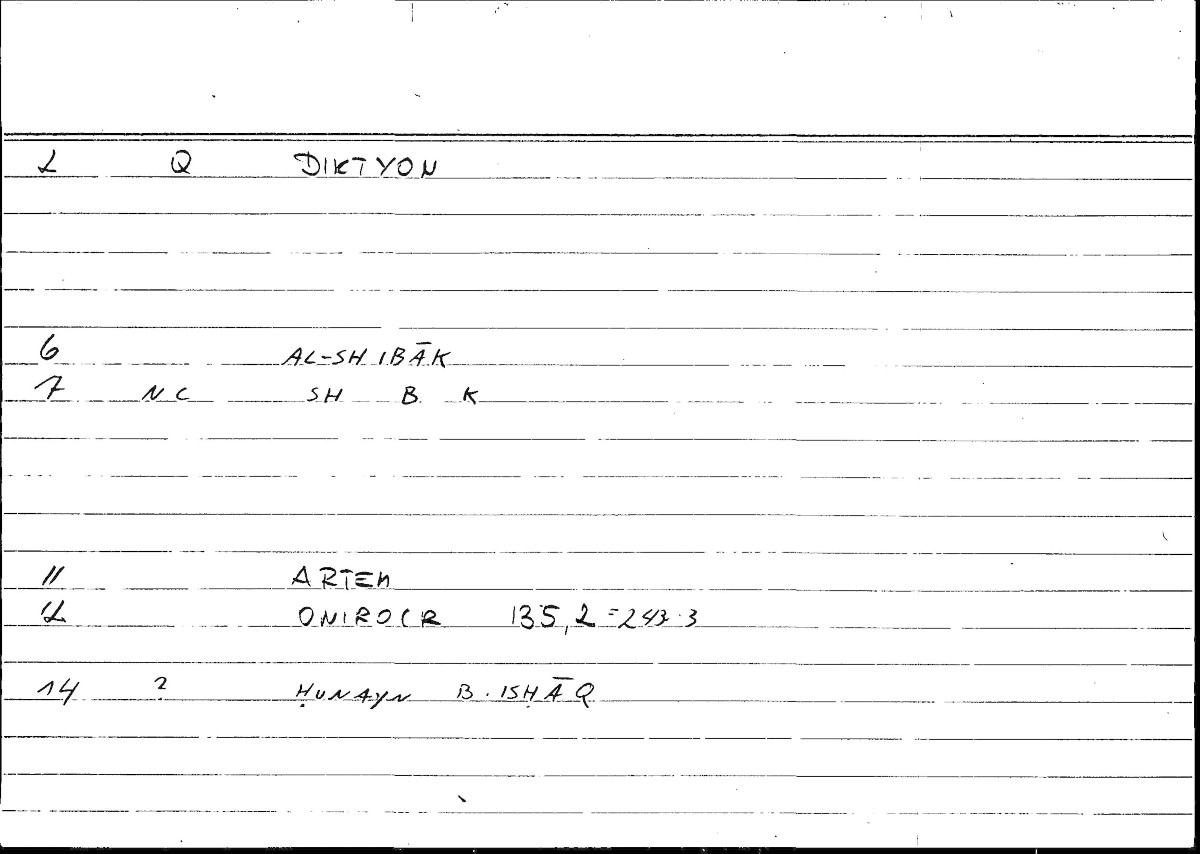 2 Q DIKTYON
6 AL-SHIBĀK
7 NC SH B K
11 ARTEM
12 ONIROCR 135,2 = 243.3
14 ? ḤUNAYN B. ISḤĀQ